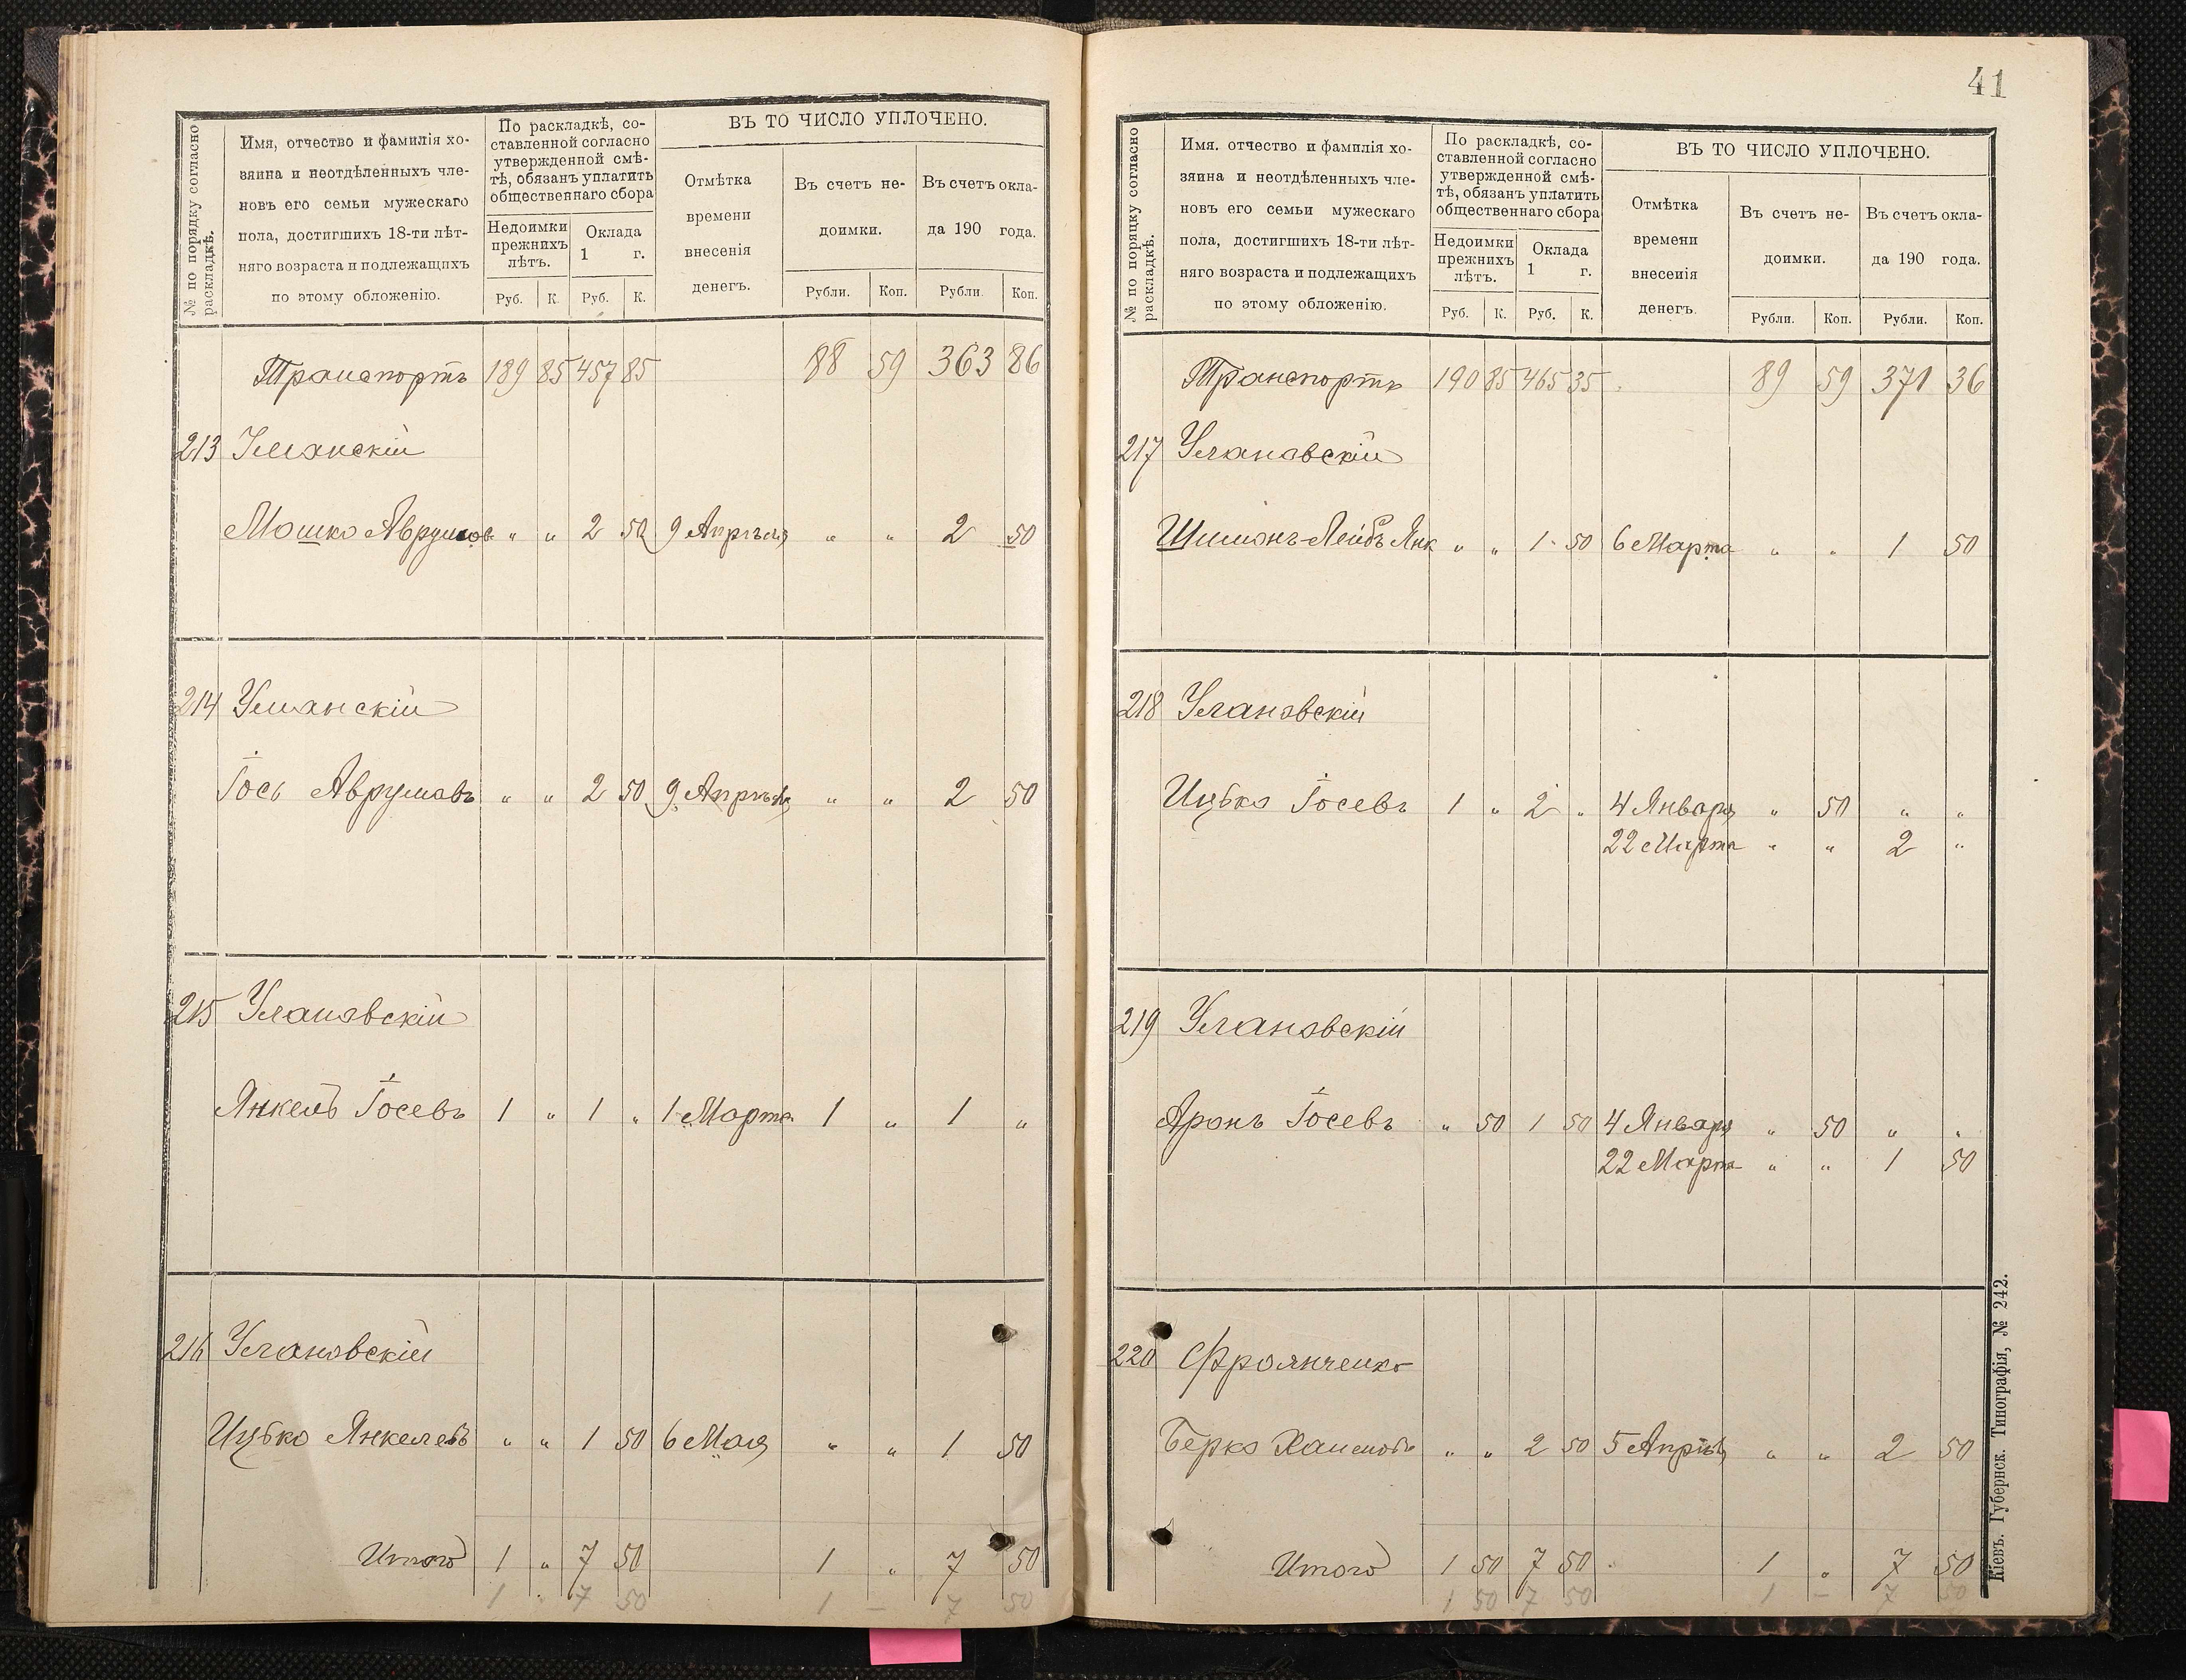 № по порядку согласно раскладкѣ.
Имя, отчество и фамилія хо-
зяина и неотдѣленныхъ чле-
новъ его семьи мужескаго
пола, достигшихъ 18-ти лѣт-
няго возраста и подлежащихъ
по этому обложенію.
По раскладкѣ, со-
ставленной согласно
утвержденной смѣ-
тѣ, обязанъ уплатить
общественнаго сбора
Недоимки
прежнихъ
лѣтъ.
Оклада
1 г.
Руб. К. Руб. К.
ВЪ ТО ЧИСЛО УПЛОЧЕНО.
Отмѣтка
времени
внесенія
денегъ.
Въ счетъ не-
доимки.
Въ счетъ окла-
да 190 года.
Рубли. Коп. Рубли. Коп.
Транспортъ 189 85 457 85 88 59 363 86
213 Уманскій
Мошко Аврумов „ „ 2 50 9 Апрѣля „ „ 2 50
214 Уманскій
Іось Аврумовъ „ „ 2 50 9 Апрѣля „ „ 2 50
215 Улановскій
Янкель Іосевъ 1 „ 1 „ 1 Марта 1 „ 1 „
216 Улановскій
Ицько Янкелевъ „ „ 1 50 6 Мая „ „ 1 50
Итого 1 „ 7 50 1 „ 7 50
1 . 7 50 1 – 7 50
41
№ по порядку согласно раскладкѣ.
Имя. отчество и фамилія хо-
зяина и неотдѣленныхъ чле-
новъ его семьи мужескаго
пола, достигшихъ 18-ти лѣт-
няго возраста и подлежащихъ
по этому обложенію.
По раскладкѣ, со-
ставленной согласно
утвержденной смѣ-
тѣ, обязанъ уплатить
общественнаго сбора
Недоимки
прежнихъ
лѣтъ.
Оклада
1 г.
Руб. К. Руб. К.
ВЪ ТО ЧИСЛО УПЛОЧЕНО.
Отмѣтка
времени
внесенія
денегъ.
Въ счетъ не-
доимки.
Въ счетъ окла-
да 190 года.
Рубли. Коп. Рубли. Коп.
Транспортъ 190 85 465 35 89 59 371 36
217 Улановскій
Шимонъ-Лейбъ Янк „ „ 1 50 6 Марта „ „ 1 50
218 Улановскій
Ицько Іосевъ 1 „ 2 „ 4 Января „ 50 „ „
22 Марта „ „ 2 „
219 Улановскій
Аронъ Іосевъ „ 50 1 50 4 Января „ 50 „ „
22 Марта „ „ 1 50
220 Фроянченко
Берко Хаимовъ „ „ 2 50 5 Апрѣля „ „ 2 50
Итого 1 50 7 50 1 „ 7 50
1 50 7 50 1 – 7 50
Кіевъ. Губернск. Типографія, № 242.